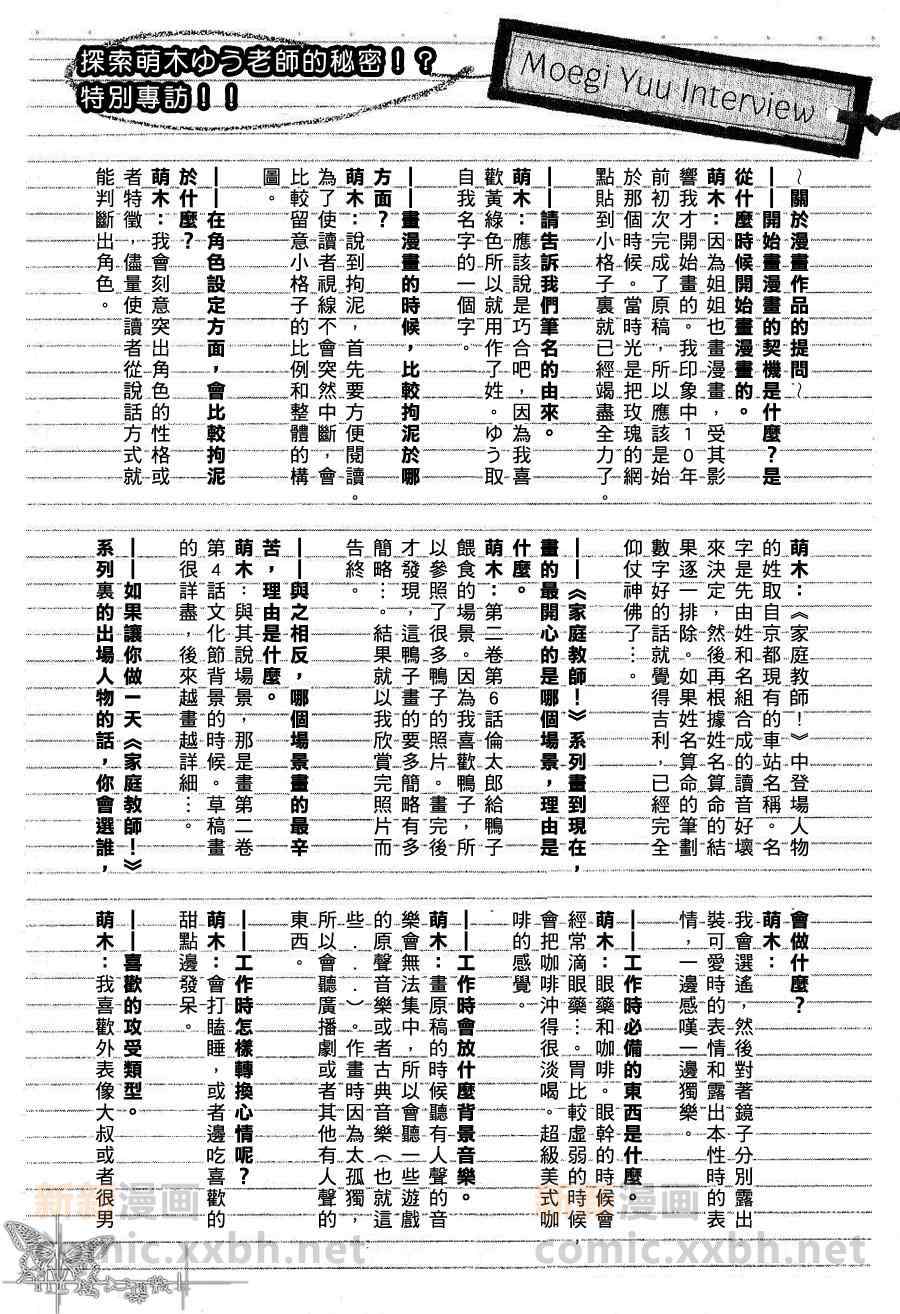 探索萌木ゆう老師的秘密！？
特別專訪！！
Moegi Yuu Interview
～關於漫畫作品的提問～
——開始畫漫畫的契機是什麼？是
從什麼時候開始畫漫畫的。
萌木：因為姐姐也畫漫畫，受其影
響我才開始畫的。我印象中10年
前初次完成了原稿，所以應該是始
於那個時候。當時光是把玫瑰的網
點貼到小格子裏就已經竭盡全力了。
——請告訴我們筆名的由來。
萌木：應該說是巧合吧，因為我喜
歡黃綠色所以就用作了姓。ゆう取
自我名字的一個字。
——畫漫畫的時候，比較拘泥於哪
方面？
萌木：說到拘泥，首先要方便閱讀。
為了使讀者視線不會突然中斷，會
比較留意小格子的比例和整體的構
圖。
——在角色設定方面，會比較拘泥
於什麼？
萌木：我會刻意突出角色的性格或
者特徵，儘量使讀者從說話方式就
能判斷出角色。
萌木：《家庭教師！》中登場人物
的姓取自京都現有的車站名稱。名
字是先由姓和名組合成的讀音好壞
來決定，然後再根據姓名算命的結
果逐一排除。如果姓名算命的筆劃
數字好的話就覺得吉利，已經完全
仰仗神佛了…。
——《家庭教師！》系列畫到現在，
畫的最開心的是哪個場景，理由是
什麼。
萌木：第二卷第6話倫太郎給鴨子
餵食的場景。因為我喜歡鴨子，所
以參照了很多鴨子的照片。畫完後
才發現，這鴨子畫的要多簡略有多
簡略…。結果就以我欣賞完照片而
告終。
——與之相反，哪個場景畫的最辛
苦，理由是什麼。
萌木：與其說場景，那是畫第二卷
第4話文化節背景的時候。草稿畫
的很詳盡，後來越畫越詳細…。
——如果讓你做一天《家庭教師！》
系列裏的出場人物的話，你會選誰，
會做什麼？
萌木：
我會選遙，然後對著鏡子分別露出
裝可愛時的表情和露出本性時的表
情，一邊感嘆一邊獨樂。
——工作時必備的東西是什麼。
萌木：眼藥和咖啡。眼幹的時候會
經常滴眼藥…。胃比較虛弱的時候，
會把咖啡沖得很淡喝。超級美式咖
啡的感覺。
——工作時會放什麼背景音樂。
萌木：畫原稿的時候聽有人聲的音
樂會無法集中，所以會聽一些遊戲
的原聲音樂或者古典音樂（也就這
些...）。作畫時因為太孤獨，
所以會聽廣播劇或者其他有人聲的
東西。
——工作時怎樣轉換心情呢？
萌木：會打瞌睡，或者邊吃喜歡的
甜點邊發呆。
——喜歡的攻受類型。
萌木：我喜歡外表像大叔或者很男
新新漫画
comic.xxbh.net
新新漫画
comic.xxbh.net